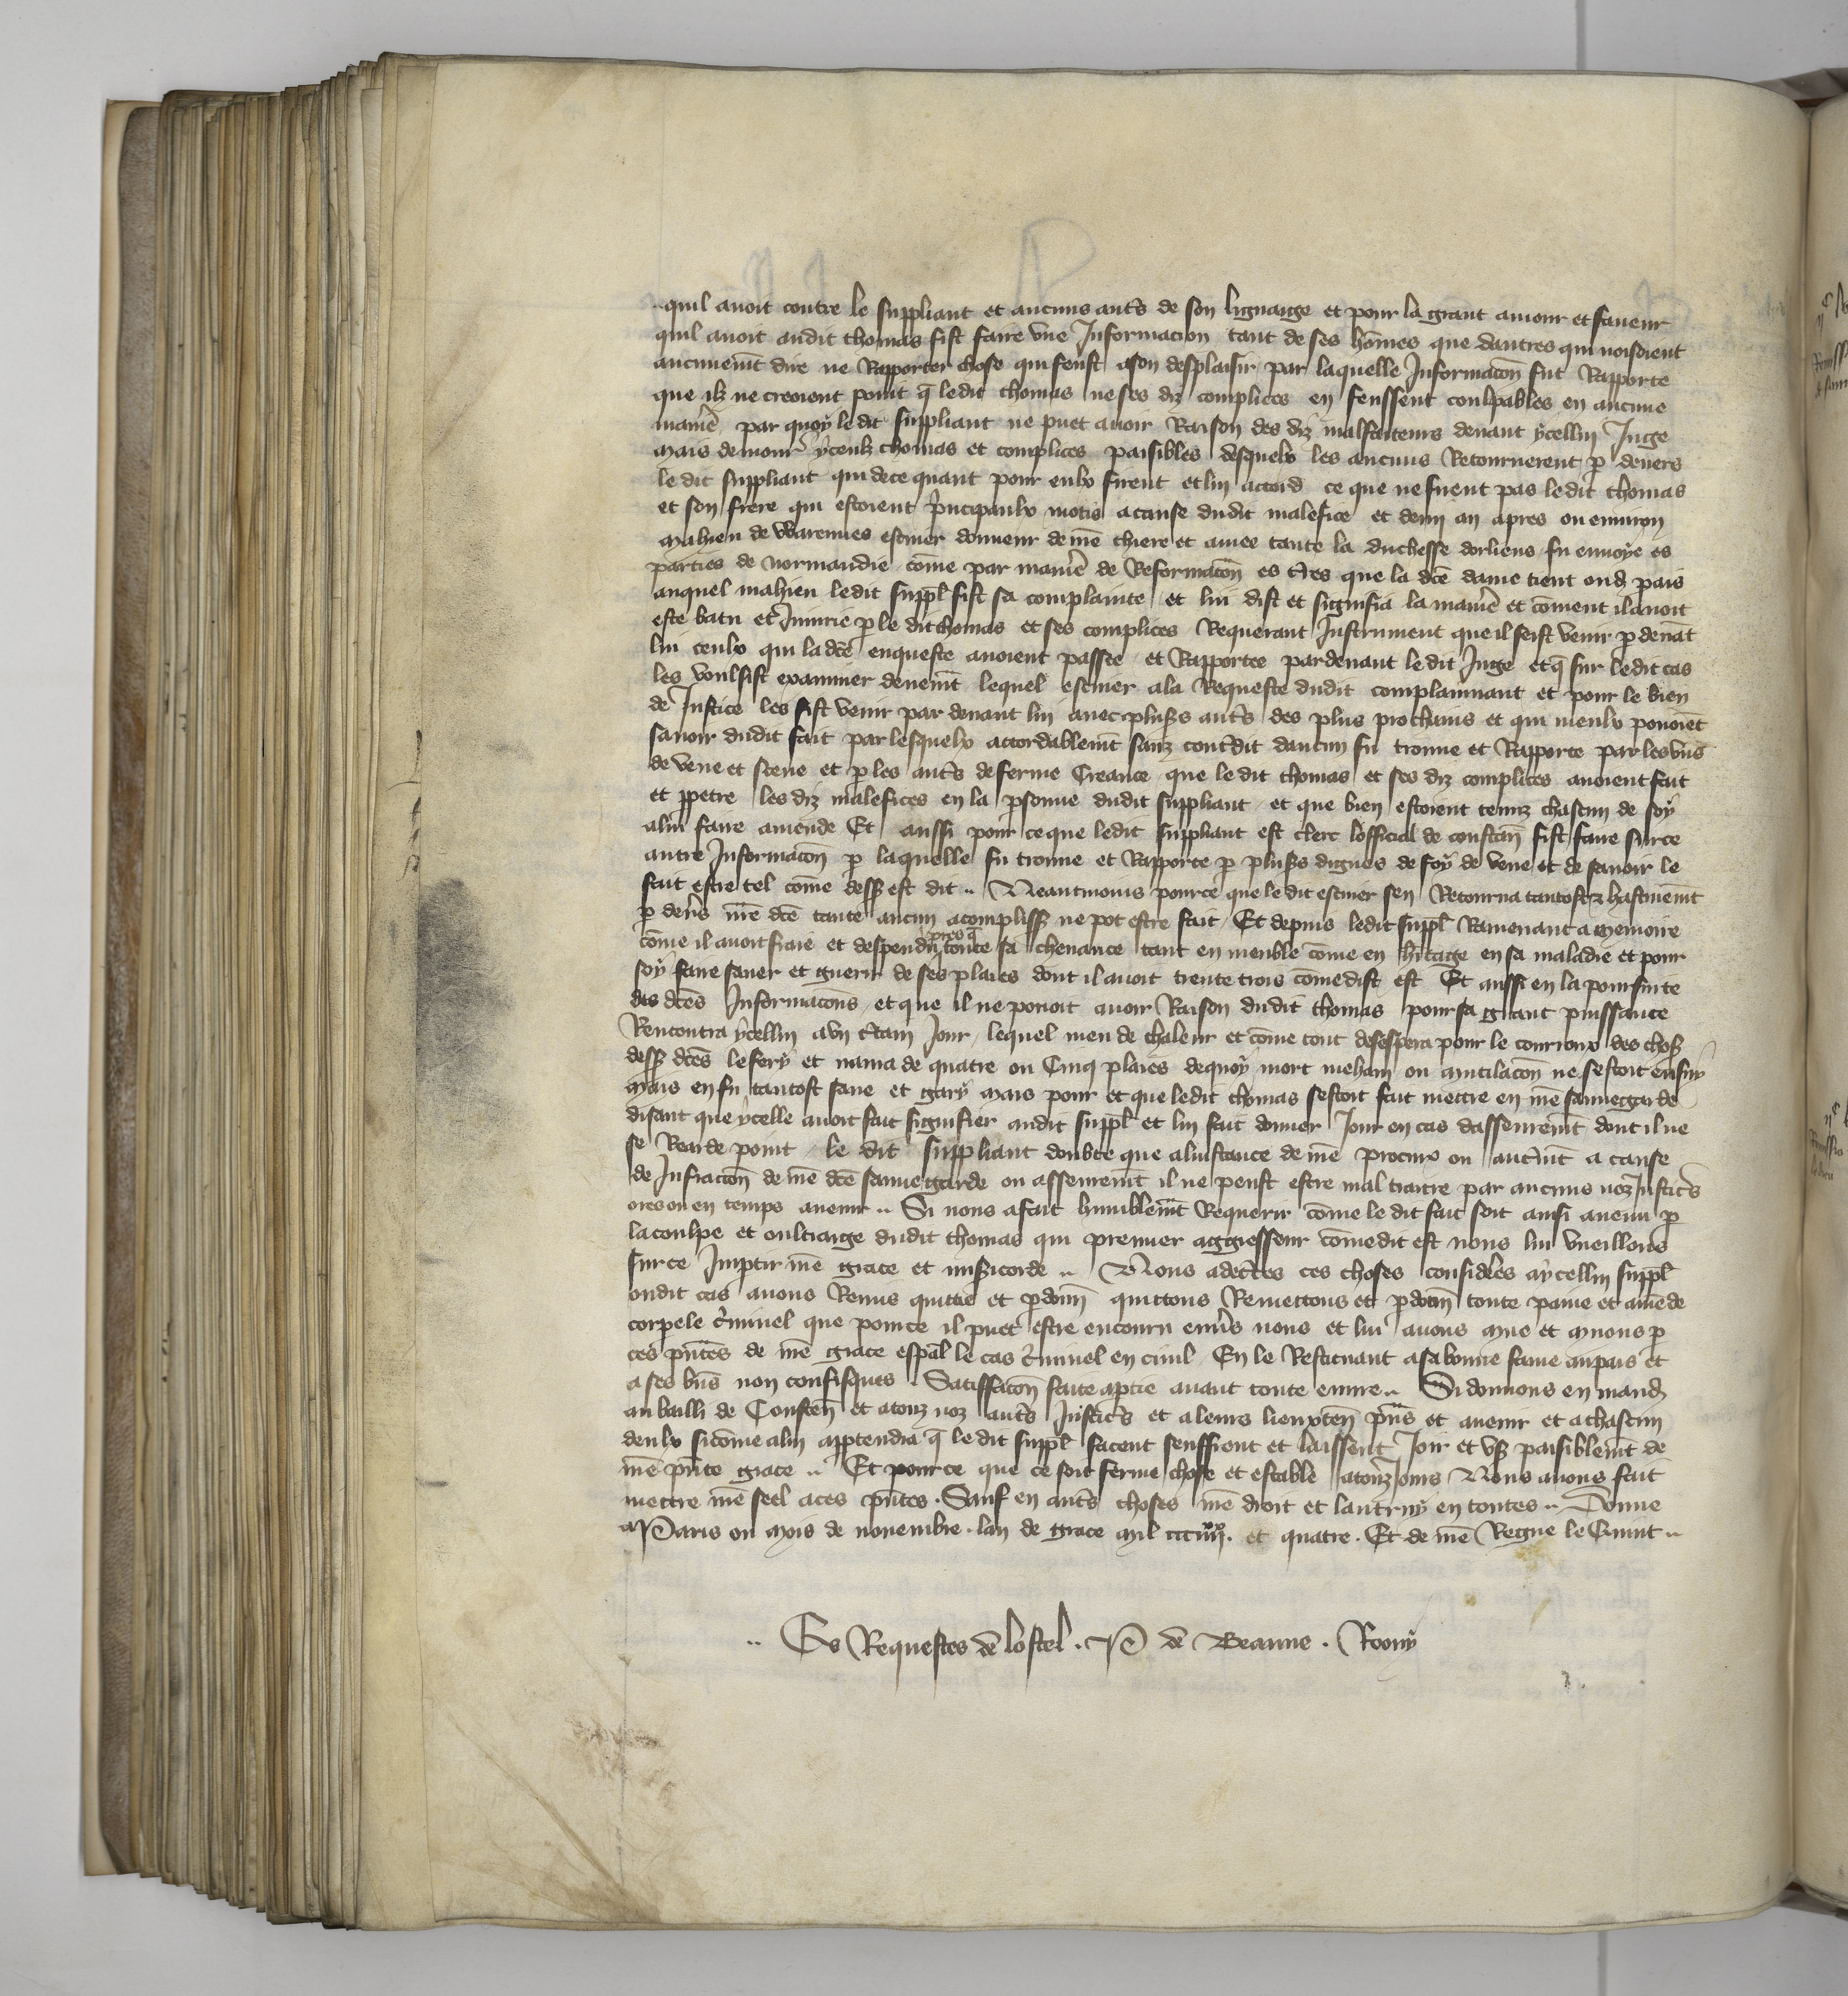 quil avoit contre le suppliant et aucuns aut̃s de son lignaige et pour la grant amour et faveur
quil avoit audit thomas fist faire vne Informacion tant de ses hõmes que dautres qui nosoient
aucunemẽt dire ne Rapporter chose qui feust a son desplaisir par laquelle Informacõn fut Rapporte
que ilz ne creoient point q̃ ledit thomas ne ses diz complices en feussent coulpables en aucune
maniẽ par quoy le dit suppliant ne puet avoir Raison des diz malfaiteurs devant ycellui Juge
mais demour̃ yceulz thomas et complices paisibles desquelx les aucuns Retournerent p̱ devers
le dit suppliant qui de ce quant pour eulx furent et lui accord ce que ne furent pas le dit thomas
et son frere qui estoient p̃ncipaulx motis a cause dudit malefice et demi an apres ou environ
mahieu de Warennes escuier donneur de nr̃e chiere et amee tante la duchesse dorliens fu envoye es
parties de normandie cõme par maniẽ de Reformacõn es t̃res que la dcẽ dame tient oud̃ pais
auquel mahieu ledit suppl̃ fist sa complainte et lui dist et signifia la maniẽ et cõment il avoit
este batu et Iniurie p̱ le dit thomas et ses complices Requerant Instrument que il feist venir p̱ devãt
lui ceulx qui la dcẽ enqueste avoient passee et Rapportee pardevant le dit Juge et q̃ sur le dit cas
les voulsist examiner devemẽt lequel escuier a la Requeste dudit complaignant et pour le bien
de Justice les fist venir par devant lui avec plus̃s aut̃s des plus prochains et qui mieulx povoiẽt
savoir dudit fait par lesquelx accordablemẽt sanz cont̃dit daucun fu trouve et Rapporte par les vns
de veue et sceue et p̱ les aut̃s de ferme Creance que le dit thomas et ses diz complices avoient fait
et p̱petre les diz malefices en la p̱sonne dudit suppliant et que bien estoient tenuz chascun de soy
a lui faire amende Et aussi pour ce que ledit suppliant est clerc lofficial de constan̄ fist faire sur ce
autre Informacõn p̱ laquelle fu trouve et Rapporte p̱ plus̃s dignes de foy de veue et de savoir le
fait estre tel cõme dess̃ est dit .. Neantmoins pour ce que le dit escuier sen Retourna tantost et hastivemẽt
p̱ deṽs nr̃e dcẽ tante aucun acompliss̃ ne pot estre fait Et depuis ledit suppl̃ Ramenant a memoire
cõme il avoit fraié et despendu pres q̃ toute sa chevance tant en meuble cõme en hẽitage en sa maladie et pour
soy faire saner et guerir de ses plaies dont il avoit trente trois cõme dist est Et aussi en la poursuite
des dcẽs Informacõns et que il ne povoit avoir Raison dudit thomas pour sa grant puissance
Rencontra ycellui a vn c̃tain Jour lequel meu de chaleur et cõme tout desespera pour le courroux des chos̃
dess̃ dcẽs le fery et navra de quatre ou Cinq plaies de quoy mort mehain ou mutilacõn ne sestoit ensuy
mais en fu tantost sane et gary mais pour et que ledit thomas sestoit fait mettre en nr̃e sauvegarde
disant que ycelle avoit fait signifier audit suppl̃ et lui fait donner Jour en cas dasseuremẽt dont il ne
se Recorde point le dit suppliant doubte que a linstance de nr̃e procur̃ ou aut̃mẽt a cause
de Infracõn de nr̃e dcẽ sauvegarde ou asseuremẽt il ne peust estre mal traitie par aucuns noz Justic̃s
ores ou en temps avenir .. Si nous a fait humblemẽt Requerir cõme le dit fait soit ainsi avenu p̱
la coulpe et oultraige dudit thomas qui premier aggresseur cõme dit est nous lui vueillons
sur ce Imp̱tir nr̃e grace et mis̃icorde .. Nous adec̃tes ces choses considẽes a ycellui suppl̃
oudit cas avons Remis quittié et p̱donn̄ quittons Remettons et p̱don̄ toute paine et amẽde
corpele c̃minel que pour ce il puet estre encouru env̄s nous et lui avons mue et muons p̱
ces p̃ntes de nr̃e grace esp̃al le cas c̃minel en civil En le Restituant a sa bonne fame au pais et
a ses biẽs non confisques Satiffacõn faite a p̱tie avant toute euvre .. Si donnons en mand̃
au bailli de Constẽn et a touz noz aut̃s Justic̃s et a leurs lieuxten̄ p̃ns et avenir et a chascun
deulx si cõme a lui app̱tendra q̃ le dit suppl̃ facent seuffrent et laissent Joir et vs̃ paisiblemẽt de
nr̃e p̃nte grace .. Et pour ce que ce soit ferme chose et estable a touz Jours Nous avons fait
mettre nr̃e seel a ces p̃ntes . Sauf en aut̃s choses nr̃e droit et lautruy en toutes .. Donne
a Paris ou mois de novembre . lan de grace mil ccc iiii xx. et quatre . Et de nr̃e Regne le Quint ..
.. Es Requestes de lostel . P de Beaune . Roony